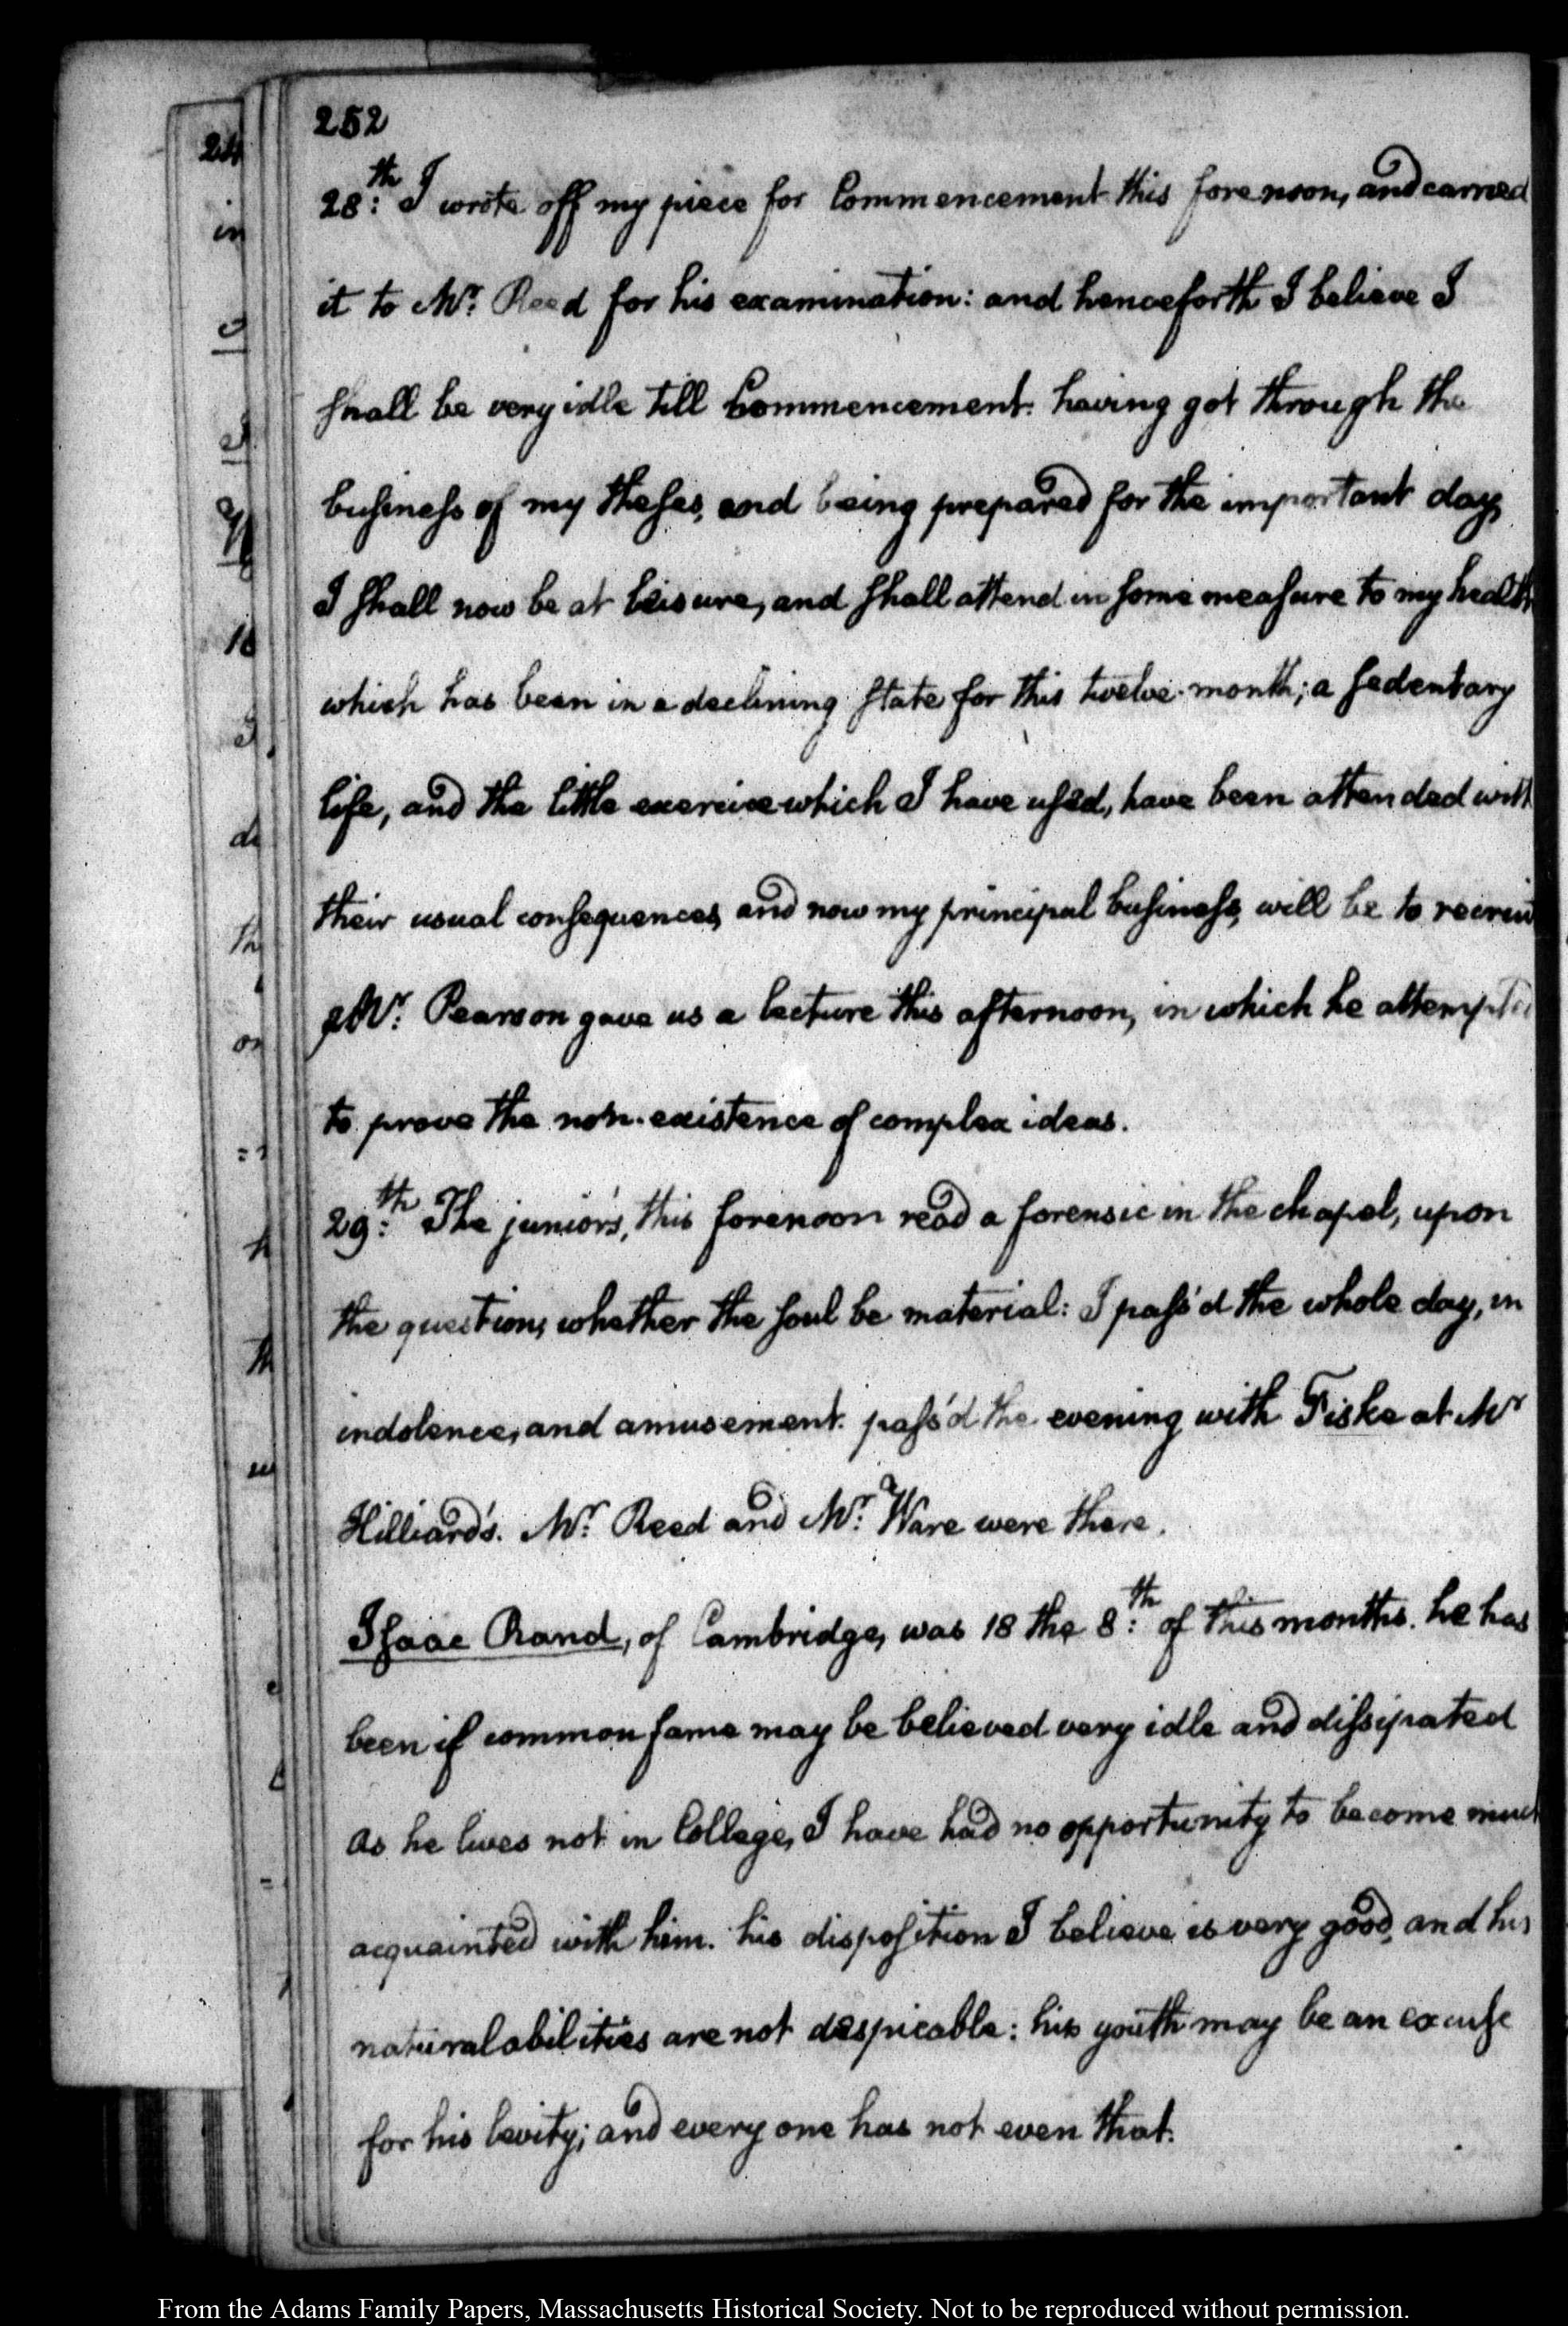 252
28:th I wrote off my piece for Commencement this forenoon, and carried
it to Mr: Reed for his examination: and henceforth I believe I
shall be very idle till Commencement. having got through the
business of my theses, and being prepared for the important day,
I shall now be at leisure, and shall attend in some measure to my health
which has been in a declining state for this twelve-month; a sedentary
life, and the little exercise which I have used, have been attended with
their usual consequences, and now my principal business, will be to recruit
Mr: Pearson gave us a lecture this afternoon, in which he attempted
to prove the non-existence of complex ideas.
29:th The junior's, this forenoon read a forensic in the chapel, upon
the question, whether the soul be material: I pass'd the whole day, in
indolence, and amusement. pass'd the evening with Fiske at Mr
Hilliard's. Mr: Reed and Mr: Ware were there.
Isaac Rand, of Cambridge, was 18 the 8:th of this months. he has
been if common fame may be believed very idle and dissipated
as he lives not in College, I have had no opportunity to become much
acquainted with him. his disposition I believe is very good, and his
natural abilities are not despicable: his youth may be an excuse
for his levity; and every one has not even that.
From the Adams Family Papers, Massachusetts Historical Society. Not to be reproduced without permission.